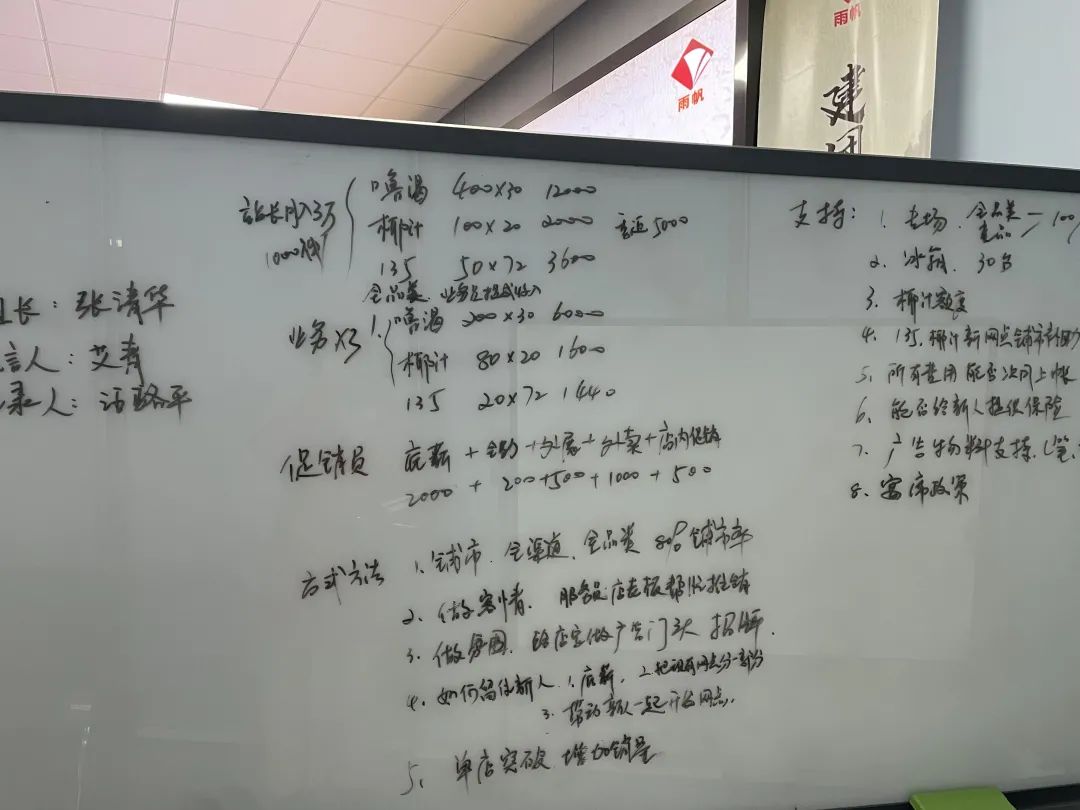 雨帆
雨帆
建团
站长月入3万
1000线
嗜渴 400×30 12000
椰汁 100×20 2000
135 50×72 3600
5000
全品类、业务员提成收入
组长：张清华
发言人：艾青
记录人：
业务×3
1. 嗜渴 200×30 6000
椰汁 80×20 1600
135 20×72 1440
促销员
底薪 + 全勤 + 外展 + 外卖 + 店内促销
2000 + 200+500+1000+500
方式方法
1. 铺市、全渠道、全品类 80% 铺市率
2、做客情、服务员店老板帮忙推销
3. 做氛围、给店家做广告门头 招牌.
4. 如何留住新人 1. 底薪, 2. 把现有网点分一部分
3. 帮助新人一起开发网点.
5、单店突破 增加销量
支持：
1. 专场、全品类 100
2、冰箱、30台
3. 椰汁额度
4、135、椰汁新网点铺市
5、所有费用能否次月上账
6、能否给新人提供保险
7、广告物料支持、
8、宴席政策